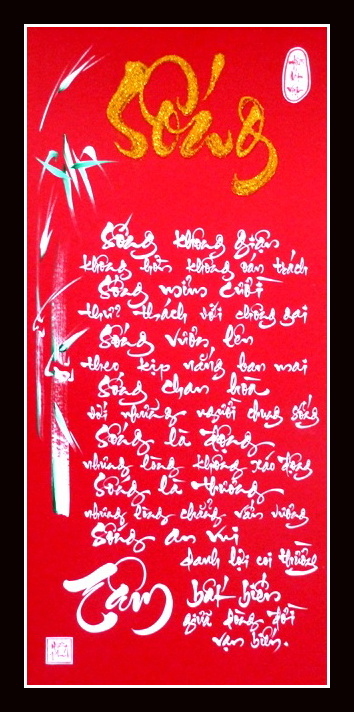 Sống
Sống không giận
không hờn không oán trách
Sống mỉm cười
thử thách với chông gai
Sống vươn lên
theo kịp nắng ban mai
Sống chan hòa
với những người chung sống
Sống là động
nhưng lòng không xao động
Sống là thương
nhưng lòng chẳng vấn vương
Sống an vui
danh lợi coi thường
Tâm bất biến
giữa dòng đời
vạn biến.